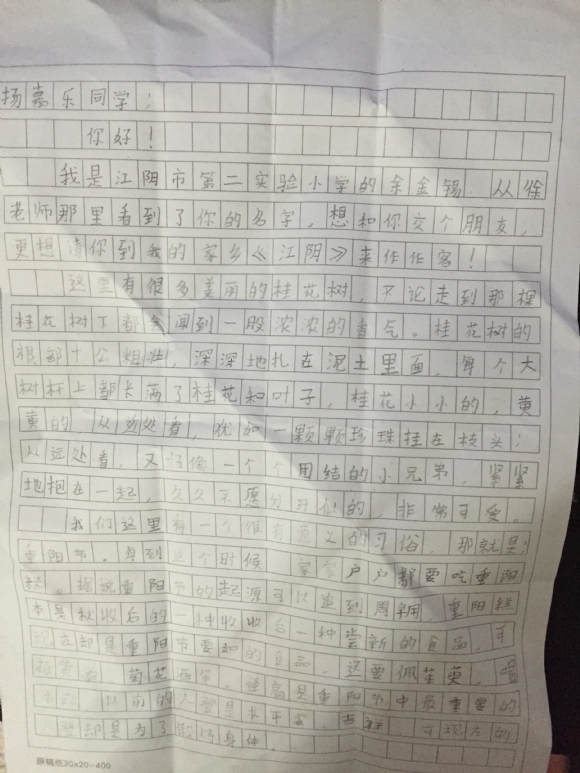 扬嘉乐同学：
你好！
我是江阴市第二实验小学的余金锡.从徐
老师那里看到了你的名字，想和你交个朋友，
更想请你到我的家乡《江阴》来作作客！
这里有很多美丽的桂花树，不论走到那棵
桂花树下都会闻到一股浓浓的香气。桂花树的
根部十公粗壮，深深地扎在泥土里面，每个大
树杆上都长满了桂花和叶子，桂花小小的，黄
黄的，从近处看，犹如一颗颗珍珠挂在枝头；
从远处看，又好像一个个团结的小兄弟，紧紧
地抱在一起，久久不愿分开似的，非常可爱。
我们这里有一个很有意义的习俗，那就是：
重阳节。每到这个时候，家家户户都要吃重阳
糕。据说重阳节的起源可以追到周朝，重阳糕
本是秋收后的一种收收后一种尝新的食品，可
现在却是重阳节要如的食品。还要佩茱萸，喝
菊花酒。登高是重阳节中最重要的
以前的人登是求平安，吉祥，可现在的
却是为了锻炼身体。
原稿纸20×20=400